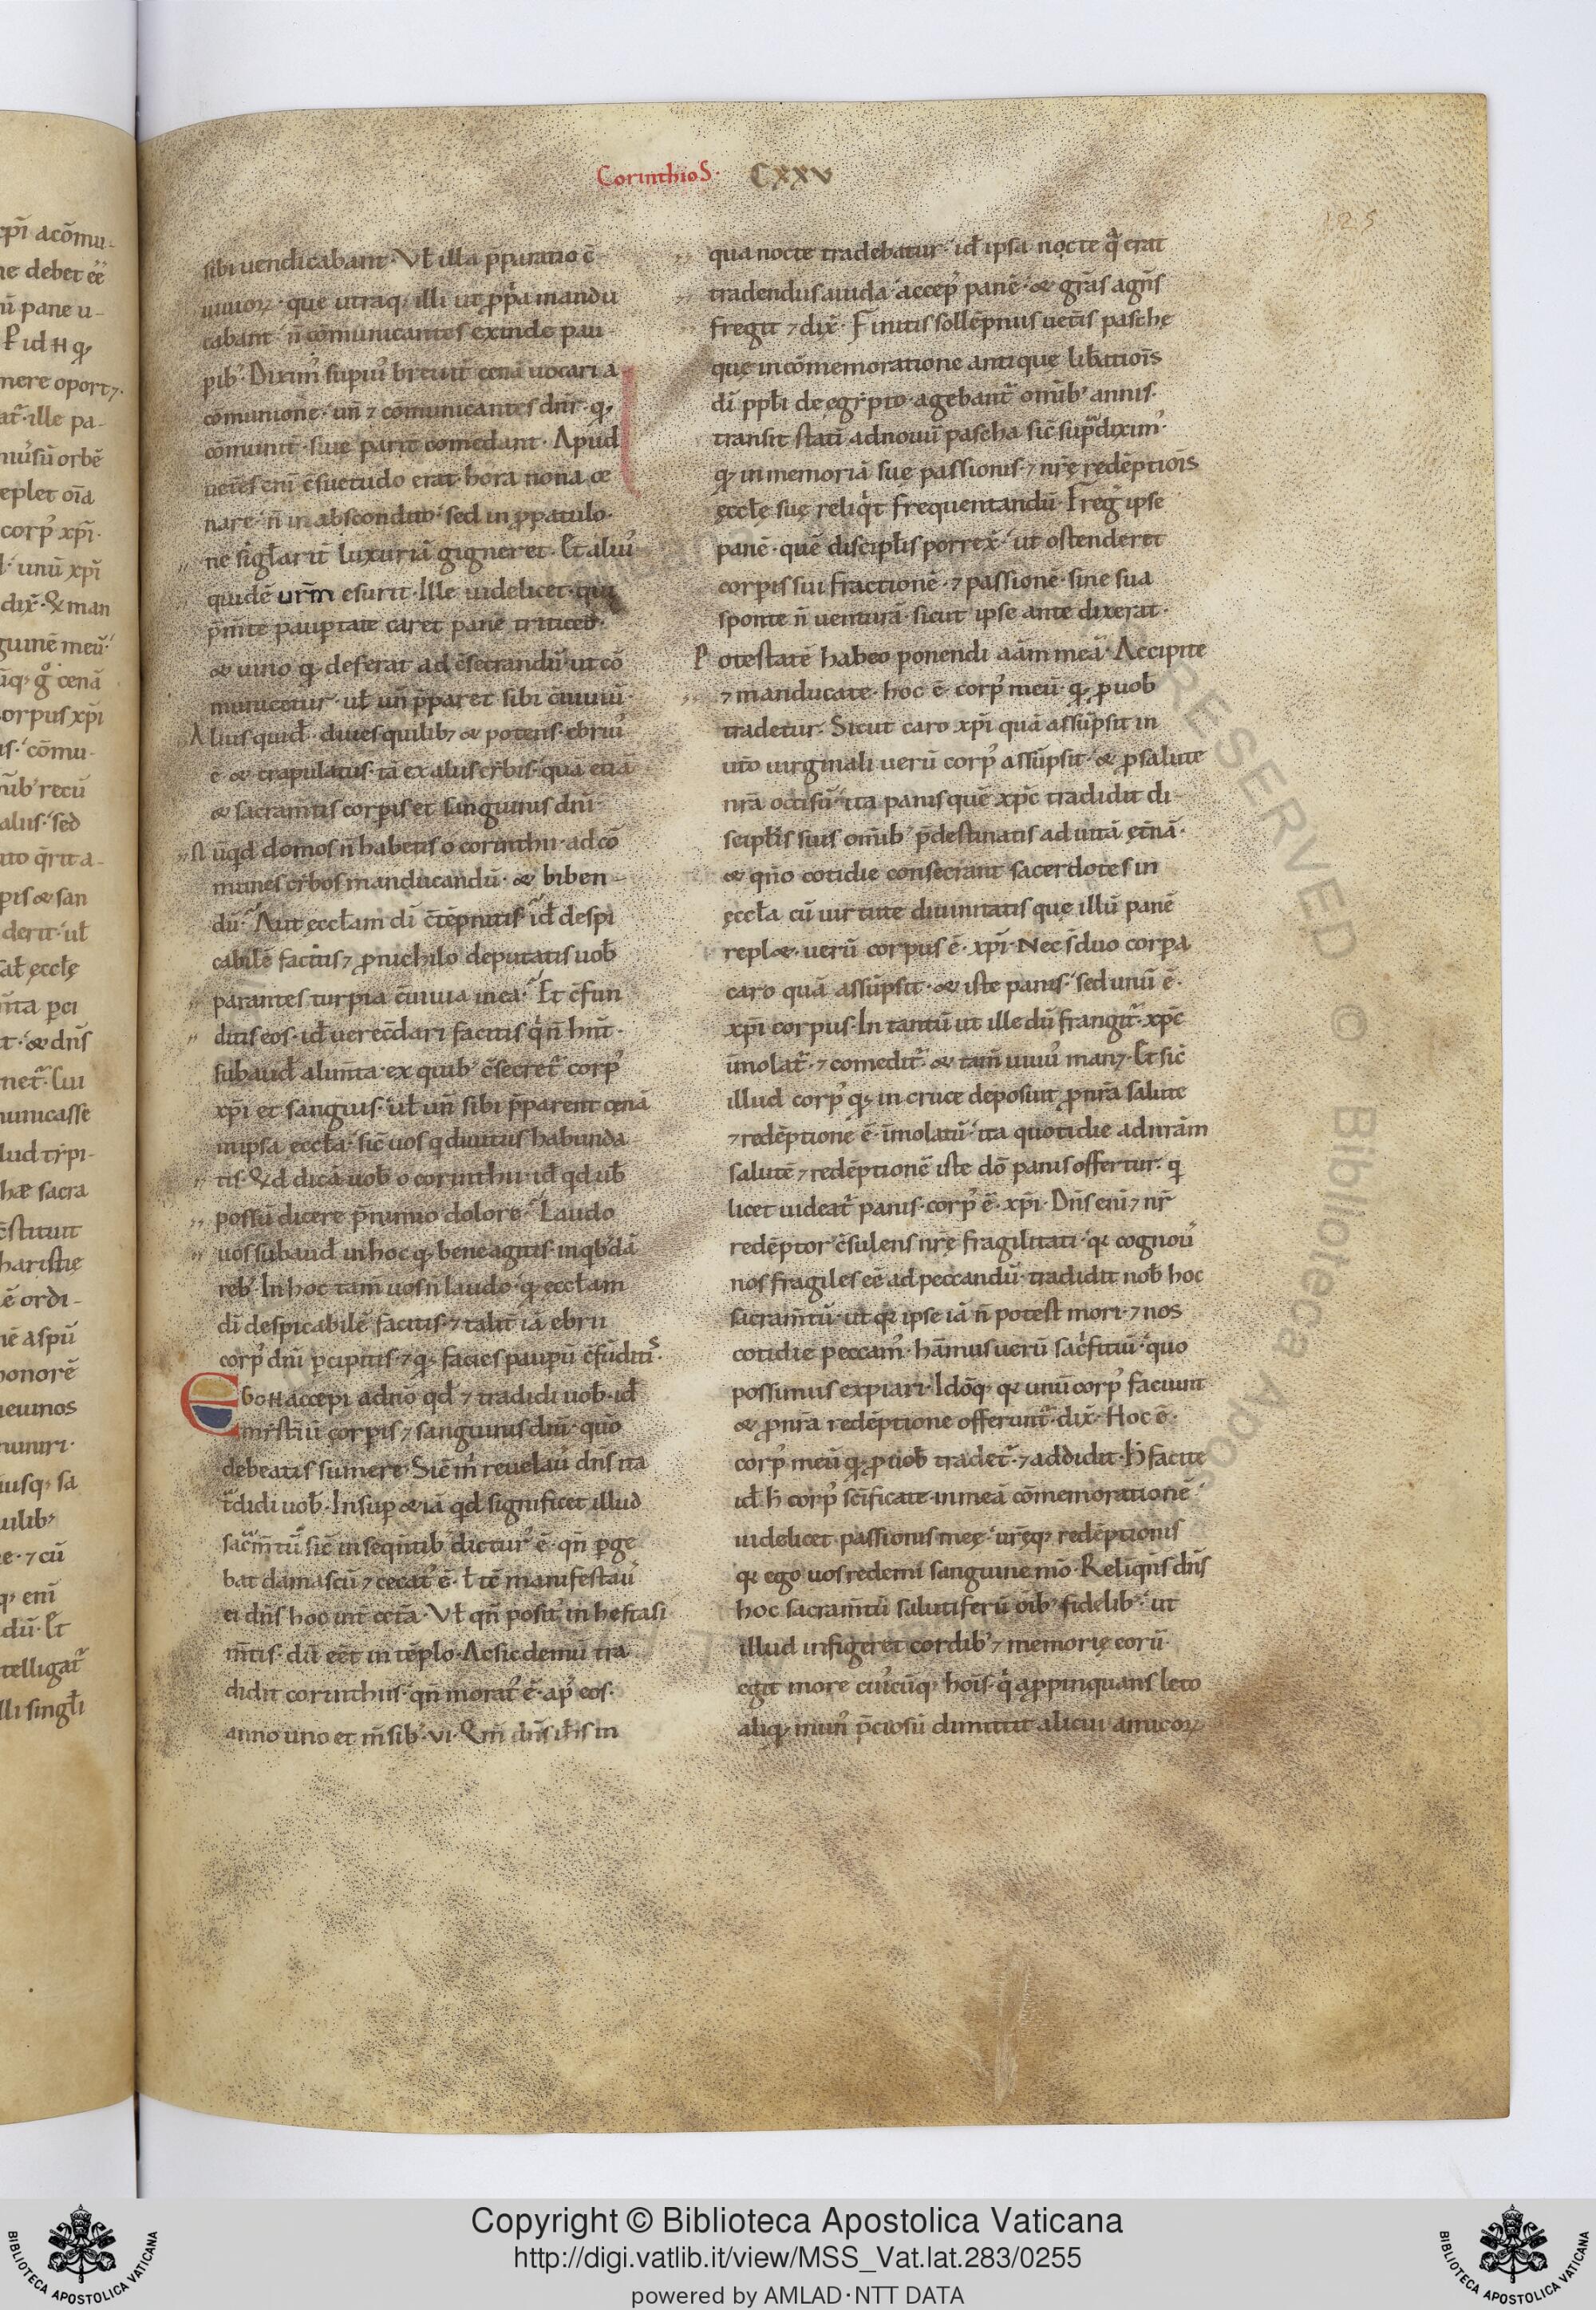 CorinthioS· CXXV
125
sibi uendicabant· Vł illa p̄paratio c̄
uiuioꝝ· que utraq; illi ut ꝓp̄a mandu
cabant· n̄ cōmunicantes exinde pau
pib᾽· Diximᷣ supiuᷣ breuit̄ cenā uocari a
cōmunione· un̄ ⁊ cōmunicantes dn̄r· q;
cōmunit̄· siue parit̄ comedant· Apud
uet̄es eni c̄suetudo erat· hora nona ce
nare· n̄ in abscondito· sed in ꝓpatulo·
ne sigłarit̄ luxuriā gigneret· Et aliuᷣ
quidē urm̄ esurit· Ille uidelicet· qui
p̄m̄te pauptate caret panē triticeū·
& uino q; deferat ad c̄secrandū· ut cō
municetur· uł un̄ p̄paret sibi c̄uiuiū·
Alius quid̄· diues quilib; & potens· ebriuᷣ
ē & crapulatus· tā ex aliis cybis· quā etiā
& sacram̄tis corpis et sanguinis dn̄i·
Nūqd domos n̄ habetis o corinthii· ad cō
munes cybos manducandū· & biben
dū· Aut eccłam dī c̄tēpnitis· id̄ despi
cabilē facitis ⁊ ꝓ nichilo deputatis uob̄
parantes turpia c̄uiuia in ea· Et c̄fun
ditis eos· id̄ uerec̄dari facitis qⁱ n̄ hn̄t·
subaud̄ alim̄ta· ex quib᾽ c̄secret̄ corpᷣ
xp̄i et sanguis· uł un̄ sibi p̄parent cenā
in ipsa eccła· sic̄ uos q diuitiis habunda
tis· Qd dicā uob̄ o corinthii· id̄ qd ub̄
possū dicere p̄ nimio dolore· Laudo
uos subaud̄ in hoc q; bene agitis· in qb᾽dā
reb᾽· In hoc tam̄ uos n̄ laudo· q; eccłam
dī despicabilē facitis· ⁊ talit̄ iā ebrii
corpᷣ dn̄i pcipitis· ⁊ q; facies paupū c̄fūditis·
Ego H accepi a dn̄o qd ⁊ tradidi uob̄· id̄
mysteriū corpis ⁊ sanguinis dn̄i· quō
debeatis sumere· Sic m̄ reuelauᷣ dn̄s ita
t̄didi uob̄· Insup & iā qd significet illud
sac̄m̄tū· sic̄ in seqn̄tib᾽ dicturᷣ ē· qn̄ pge
bat damascū ⁊ cecatᷣ ē· ł tē manifestauᷣ
ei dn̄s hoc int̄ cet̄a· Vł qn̄ positᷣ in hestasi
m̄tis· dū eēt in tēplo· Ac sic demū tra
didit corinthiis· qn̄ moratᷣ ē· ap᷒ eos·
anno uno et m̄sib᾽· vi· Qm̄ dn̄s ih̄s in
qua nocte tradebatur· id̄ ipsa nocte qᵃ erat
tradendus a iuda· accepᷣ panē· & gr̄as agn̄s
fregit ⁊ dix̄· Finitis sollēpniis uet̄is pasche
que in cōmemoratione antique libatiois
dī ppłi de egypto· agebant̄ omīb᾽ annis·
transit statī ad nouū pascha sic̄ sup̄ diximᷣ
q; in memoriā sue passionis· ⁊ nr̄ę redēptiois
ęccłę suę reliqt frequentandū· Freg᷒ ipse
panē· quē discipłis porrex̄· ut ostenderet
corpis sui fractionē· ⁊ passionē· sine sua
sponte n̄ uenturā· sicut ipse ante dixerat·
Potestatē habeo ponendi aām meā· Accipite
⁊ manducate· hoc ē· corpᷣ meū· q; ꝓ uob̄
tradetur· Sicut caro xp̄i quā assūpsit in
uto uirginali uerū corpᷣ assūpsit· & ꝓ salute
nr̄a occisū· ita panis quē xp̄c tradidit di
scipłis suis om̄ib᾽ p̄destinatis ad uitā ęt̄nā·
& qn̄o cotidie consecrant sacerdotes in
ęccła cū uirtute diuinitatis que illū panē
repl&· uerū corpus ē· xp̄i· Nec s̄ duo corpa
caro quā assūpsit· & iste panis· sed unū ē·
xp̄i corpus· In tantū ut ille dū frangit̄· xp̄c
īmolat̄· ⁊ comedit̄· & tam̄ uiuuᷣ man;· Et sic̄
illud corpᷣ q; in cruce deposuit ꝓ nr̄a salute
⁊ redēptione ē· īmolatū· ita quotidie ad nr̄ām
salutē ⁊ redēptionē iste dō panis offertur· q
licet uideat̄ panis· corpᷣ ē· xp̄i· Dn̄s eni ⁊ nr̄
redēptor c̄sulens nr̄ę fragilitati· q; cognouᷣ
nos fragiles eē ad peccandū· tradidit nob̄ hoc
sacram̄tū· ut q; ipse iā n̄ potest mori· ⁊ nos
cotidie peccamᷣ· hām̄us uerū sacⁱfitiū· quo
possimus expiari· Idōq; q; unū corpᷣ faciunt
& ꝓ nr̄a redēptione offerunt̄· dix̄· Hoc ē·
corpᷣ meū q; ꝓ uob̄ tradet̄· ⁊ addidit· H̄ facite
id̄ h̄ corpᷣ sc̄ificate in meā cōmemorationē·
uidelicet passionis meę· ur̄ęq; redēptionis
q; ego uos redemi sanguine mō· Reliqn̄s dn̄s
hoc sacram̄tū salutiferū oīb᾽ fidelib᾽· ut
illud infigeret cordib᾽ ⁊ memorię eorū·
egit more cuiᷣcūq; hois· qⁱ appinquans leto
aliq; munᷣ p̄ciosū dimittit alicui amicoꝝ
Copyright © Biblioteca Apostolica Vaticana
http://digi.vatlib.it/view/MSS_Vat.lat.283/0255
powered by AMLAD·NTT DATA
BIBLIOTECA APOSTOLICA VATICANA
BIBLIOTECA APOSTOLICA VATICANA